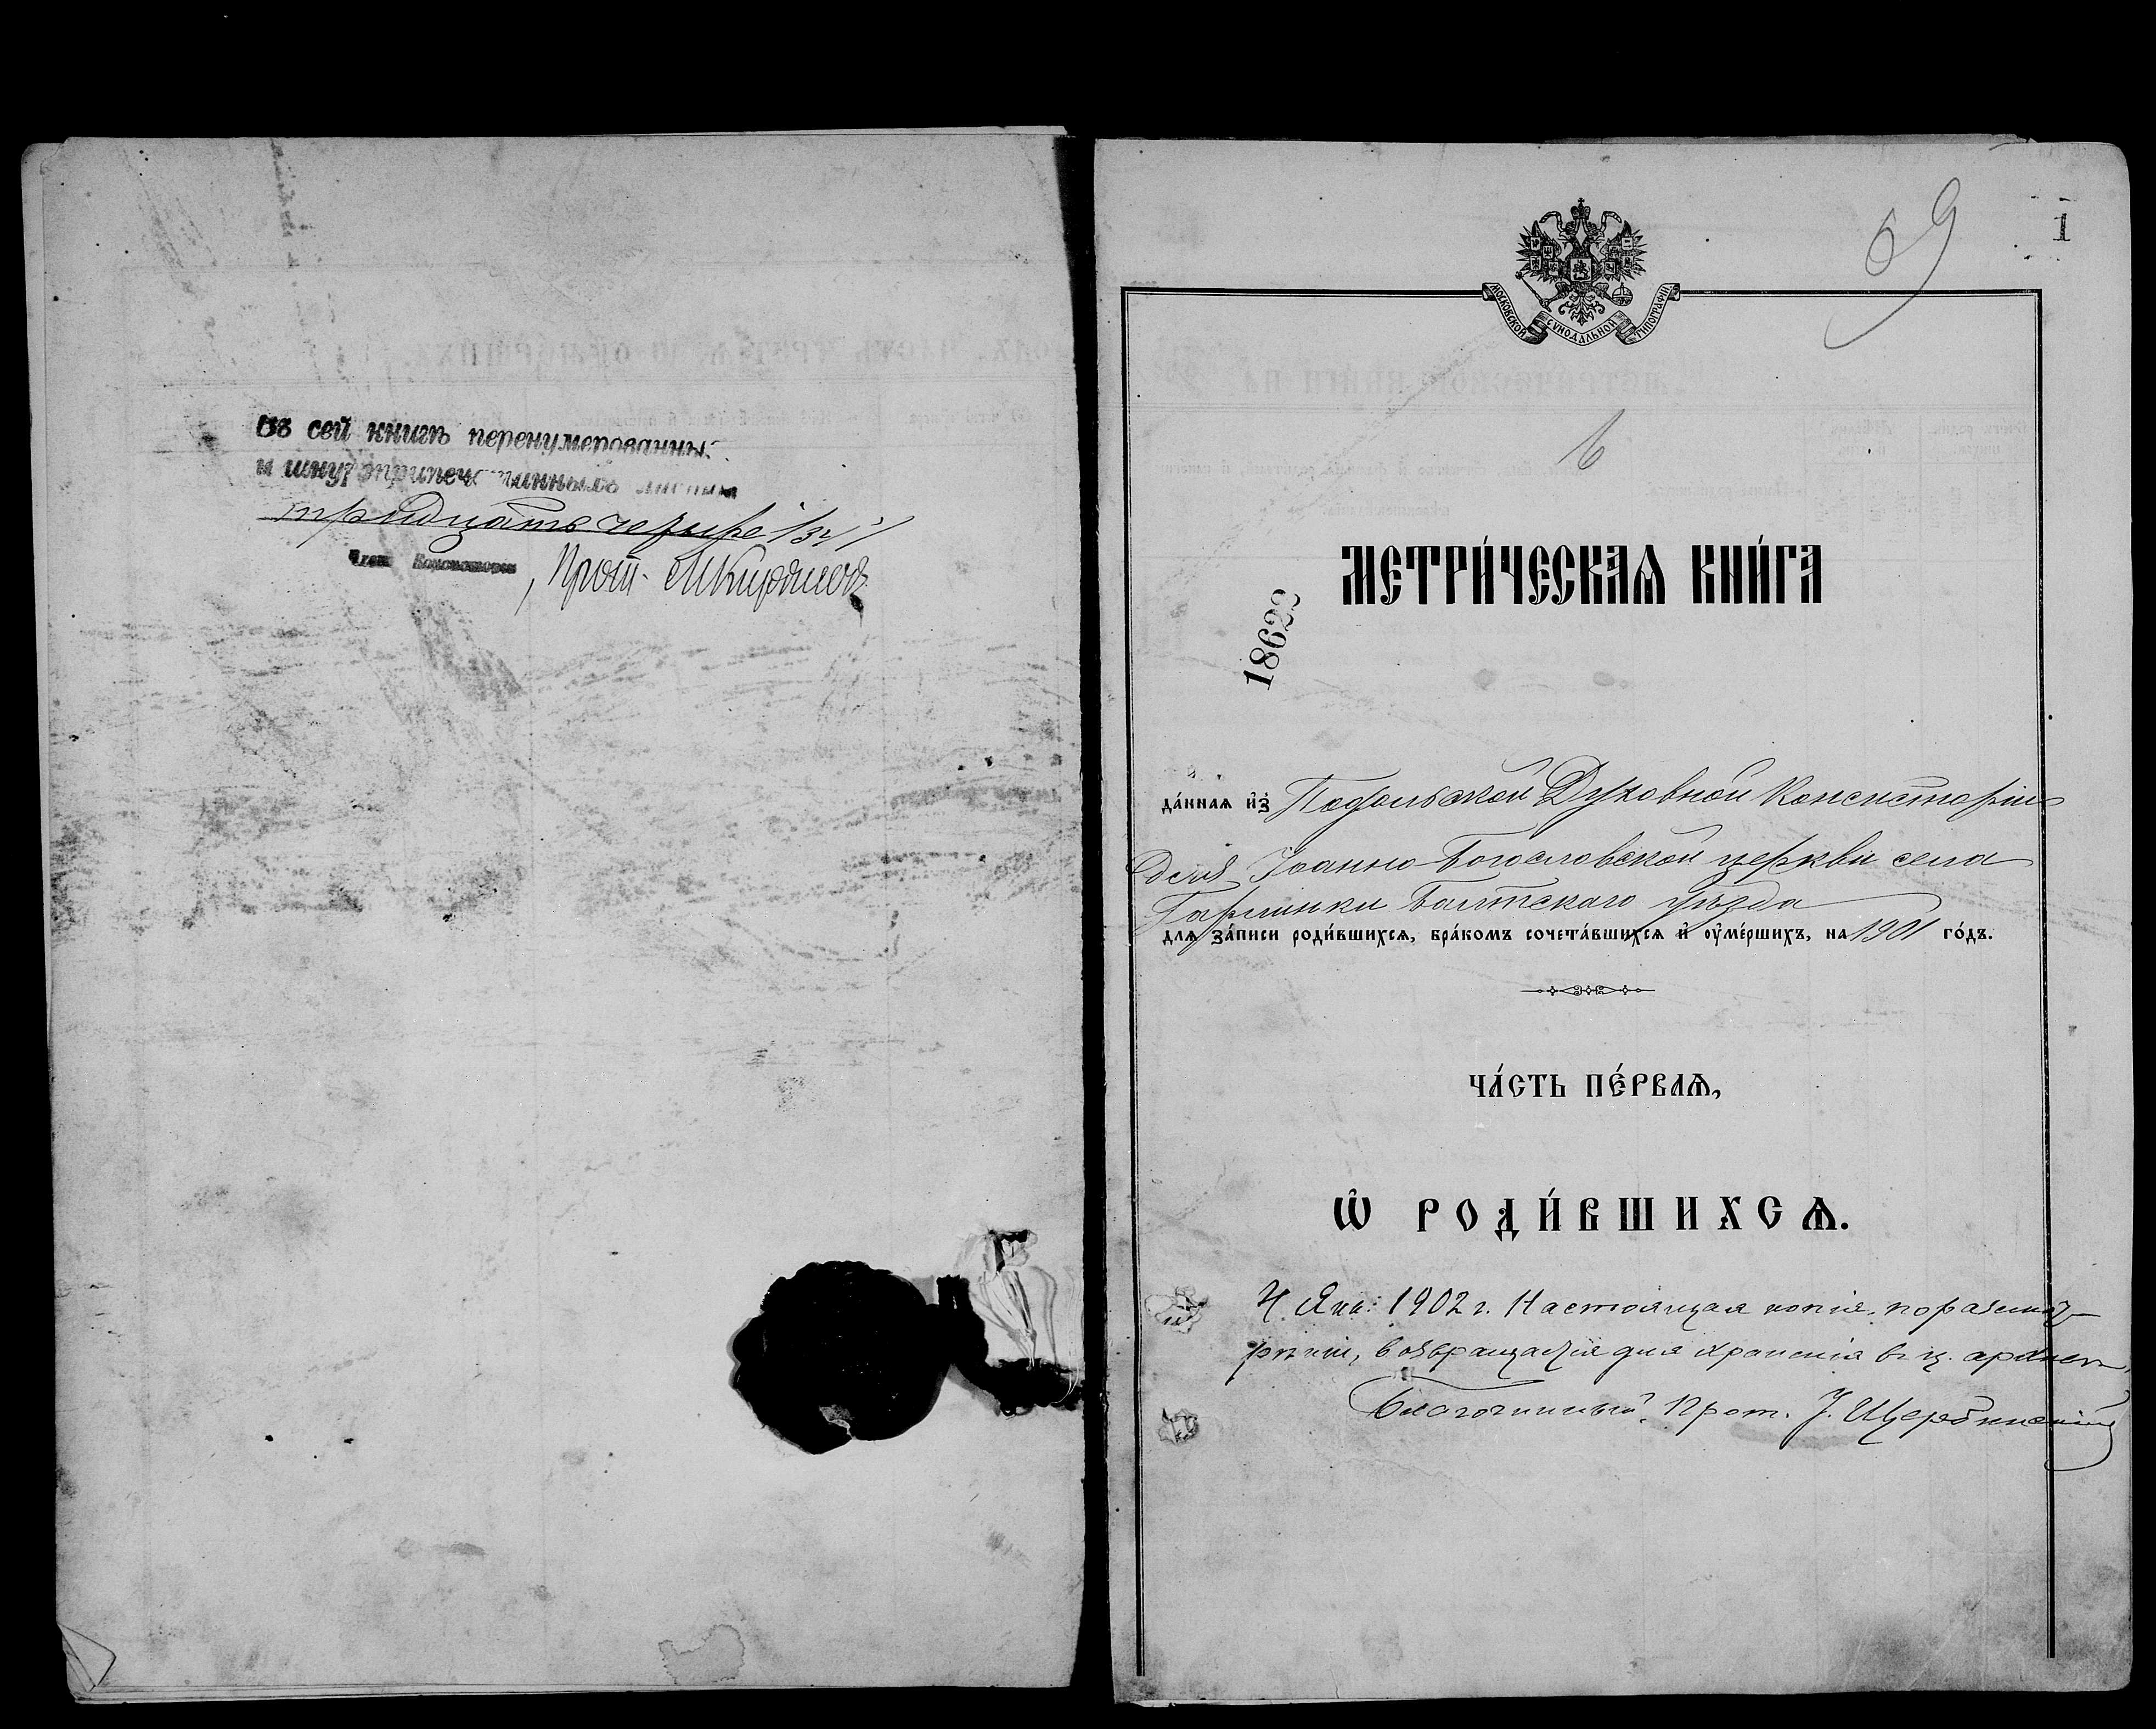 Въ сей книгѣ перенумерованных
и шнуроприпечатанныхъ листовъ
тридцать четыре /34/
Членъ Консисторіи, Прот.
69
1
МОСКОВСКОЙ СѴНОДАЛЬНОЙ ТИПОГРАФІИ
6
МЕТРИ́ЧЕСКАѦ КНИ́ГА
18623
да́ннаѧ и҆з̾ Подольской Духовной Консисторіи
для Іоанно-Богословской церкви села
Гарминки Балтскаго уѣзда
длѧ за́писи роди́вшихсѧ, бра́комъ сочета́вшихсѧ и҆ оу҆ме́ршихъ, на 1901 го́дъ.
ЧА́СТЬ ПЕ́РВАѦ,
Ѡ҆ РОДИ́ВШИХСѦ.
4 Янв. 1902 г. Настоящая копія, по разсмот-
рѣніи, возвращается для храненія въ ц. архивѣ.
Благочинный, Прот. І. Щербинскій